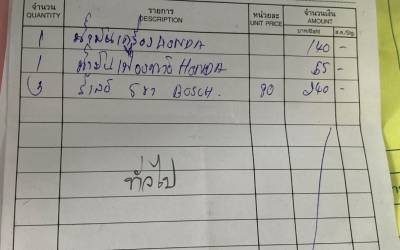 จำนวน รายการ หน่วยละ จำนวนเงิน
QUANTITY DESCRIPTION UNIT PRICE AMOUNT
บาท/Baht ส.ต./Stg.
1 น้ำมันเครื่อง HONDA 140 -
1 น้ำมันเฟืองท้าย HONDA 65 -
3 รีเลย์ 5 ขา BOSCH. 80 240 -
ทั่วไป